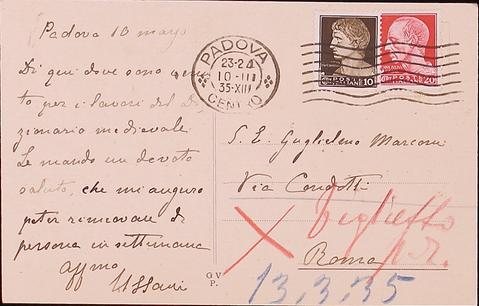 Padova 10 marzo
Di qui dove sono venu
to per i lavori del Di
zionario medievale
Le mando un devoto
saluto, che mi auguro
poter rinnovare di
persona in settimana
affmo
Ussani
PADOVA
23-24
10·III
35·XIII
CENTRO
POSTE ITALIANE 10
POSTE ITALIANE 20
S. E. Guglielmo Marconi
Via Condotti
Roma
biglietto
13.3.35
G V
P.